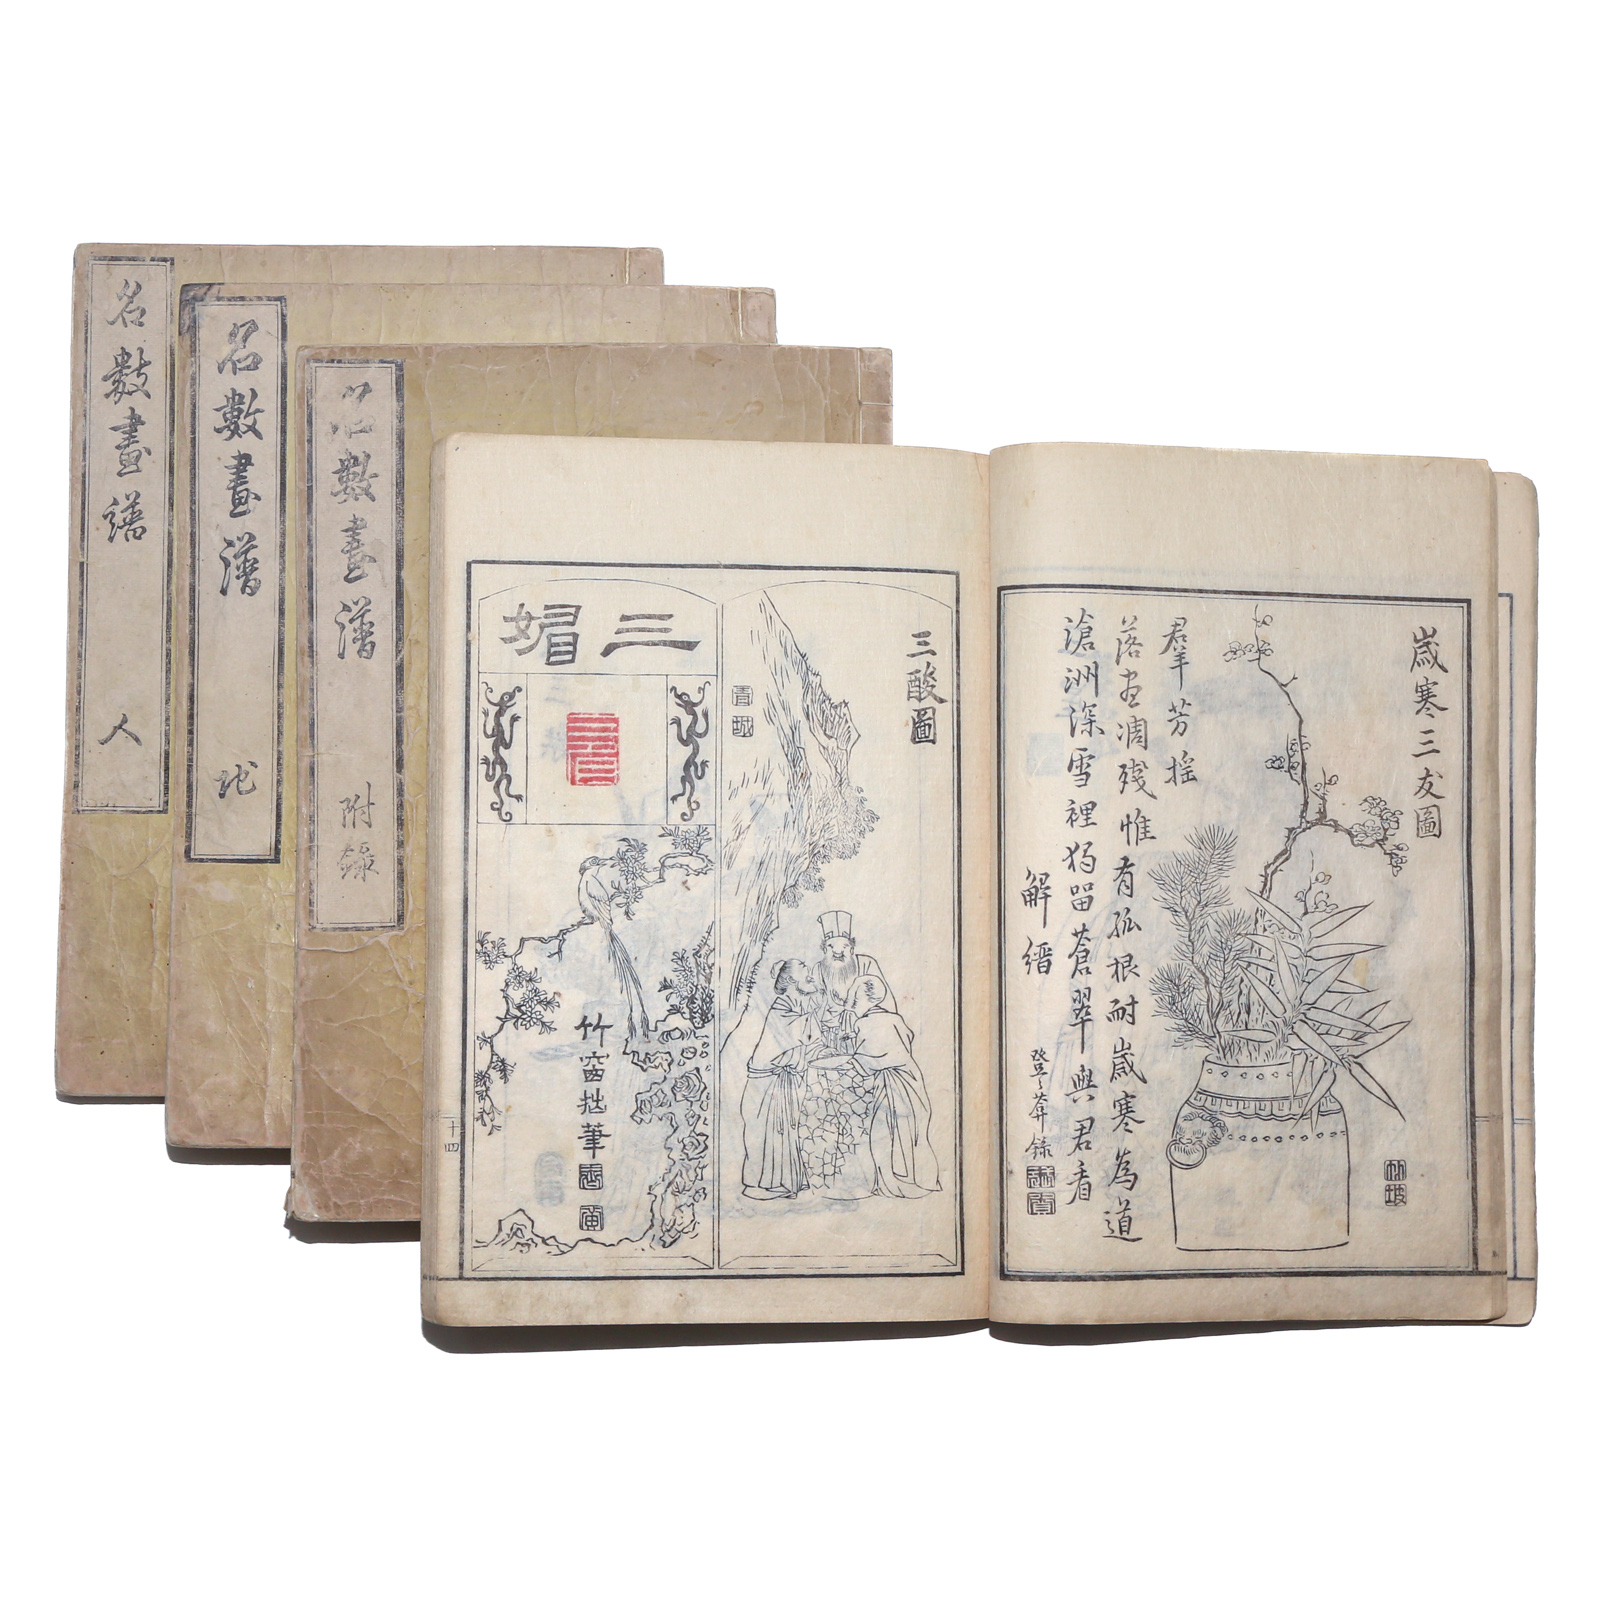 名數畫譜
人
名數畫譜
地
名數畫譜
附錄
歲寒三友圖
群芳搖
落盡凋殘惟有孤根耐歲寒為道
滄洲深雪裡獨留蒼翠與君看
解縉
竹坡
三酸圖
三媚
竹窗拙筆
十四